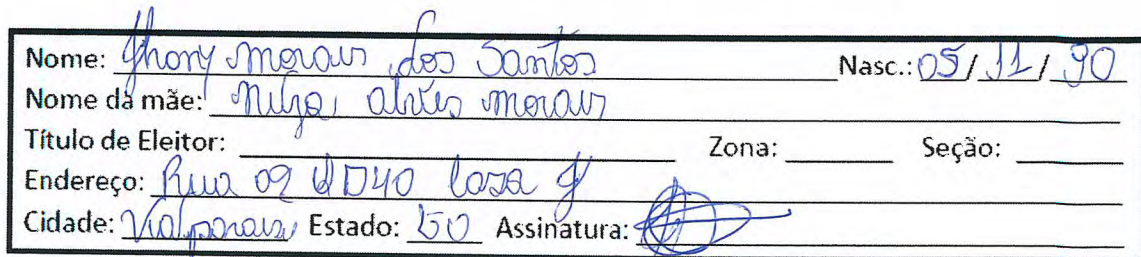 Nome: Jhony morais dos Santos Nasc.: 05/11/90
Nome da mãe: Nilza alves morais
Título de Eleitor: Zona: Seção:
Endereço: Rua 09 QD40 Casa
Cidade: Valparais Estado: GO Assinatura: